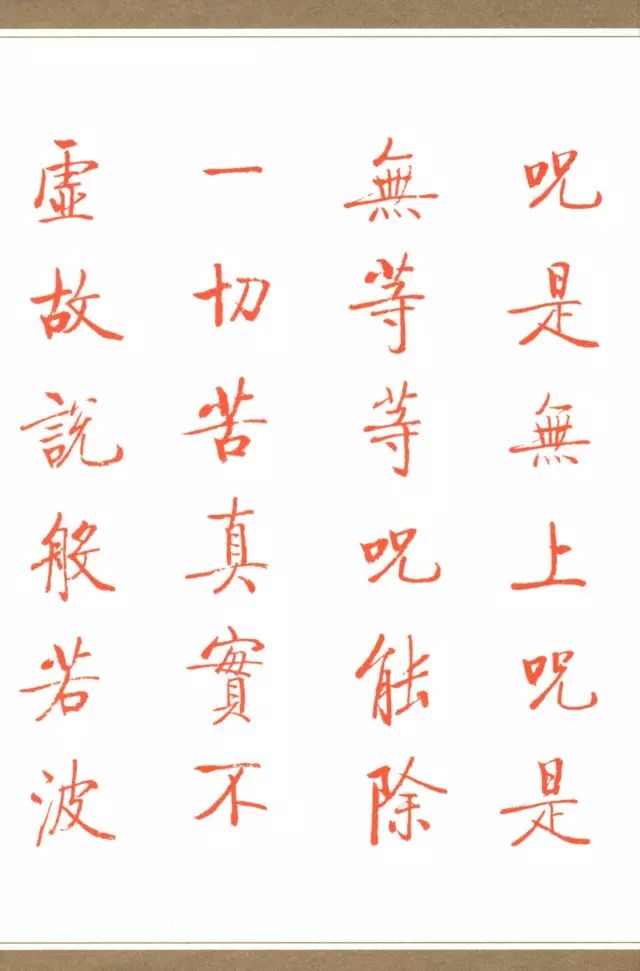 呪是無上呪是
無等等呪能除
一切苦真實不
虛故説般若波